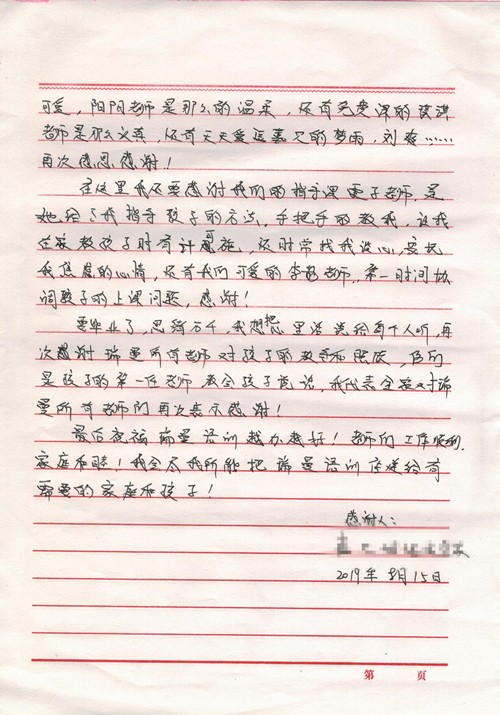 可爱，阳阳老师是那么的温柔，还有免费课的
老师是那么
再次感恩感谢！
在这里我还要感谢我们的指导课老师，是
她给了我指导孩子的方法，手把手的教我，让我
在家教孩子时有计可施，还时常找我谈心，安抚
我焦虑的心情，还有我们可爱的李老师，第一时间协
调孩子的上课问题，感谢！
要毕业了，思绪万千，我想把心里话说给每个人听，再
次感谢瑞曼所有老师对孩子的教育和照顾，你们
是孩子的第一任老师，教会孩子说话，我代表全家对瑞
曼所有老师们再次表示感谢！
最后祝福瑞曼语训越办越好！老师们工作顺利，
家庭和睦！我会尽我所能把瑞曼语训传递给有
需要的家庭和孩子！
感谢人：
2019年 月15日
第 页